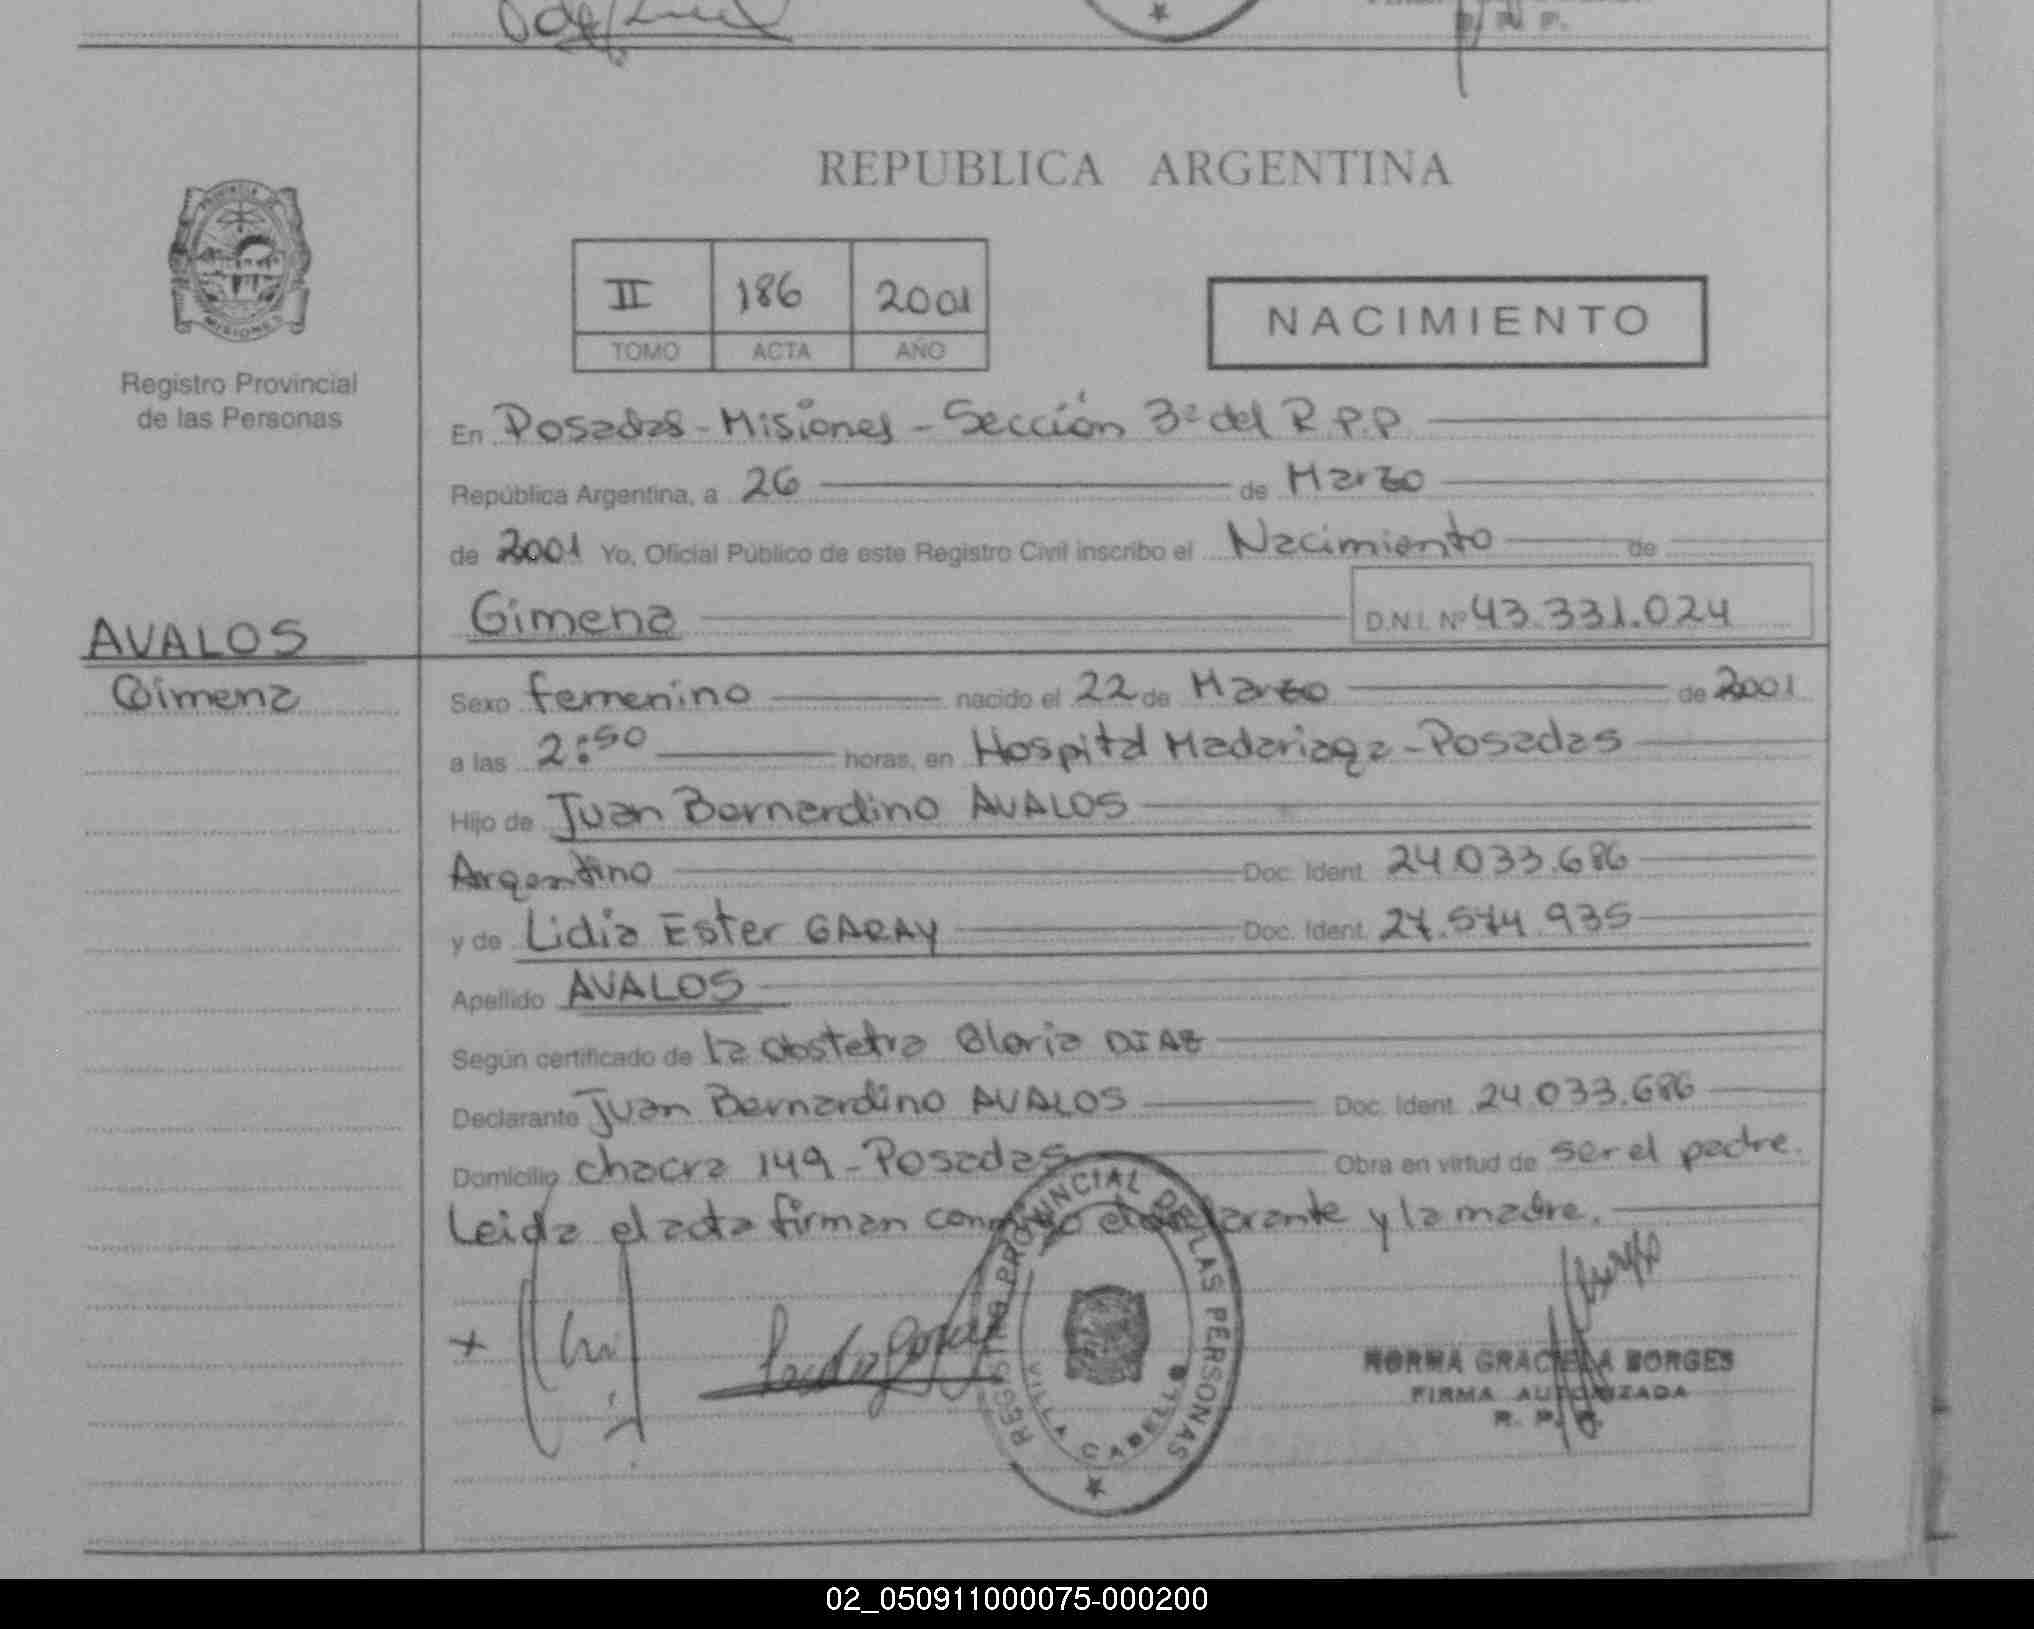 REPUBLICA ARGENTINA
PROVINCIA
MISIONES
Registro Provincial
de las Personas
II 186 2001
TOMO ACTA AÑO
NACIMIENTO
En Posadas - Misiones - Sección 3ª del R.P.P.
República Argentina, a 26 de Marzo
de 2001 Yo, Oficial Público de este Registro Civil inscribo el Nacimiento de
Gimena D.N.I. Nº 43.331.024
AVALOS
Gimena
Sexo femenino nacido el 22 de Marzo de 2001
a las 2:50 horas, en Hospital Madariaga - Posadas
Hijo de Juan Bernardino AVALOS
Argentino Doc. Ident. 24.033.686
y de Lidia Ester GARAY Doc. Ident. 27.574.935
Apellido AVALOS
Según certificado de la obstetra Gloria DIAZ
Declarante Juan Bernardino AVALOS Doc. Ident. 24.033.686
Domicilio chacra 149 - Posadas Obra en virtud de ser el padre.
Leida el acta firman conmigo el declarante y la madre.
REGISTRO PROVINCIAL DE LAS PERSONAS
VILLA CABELLO
NORMA GRACIELA BORGES
FIRMA AUTORIZADA
R. P. P.
02_050911000075-000200